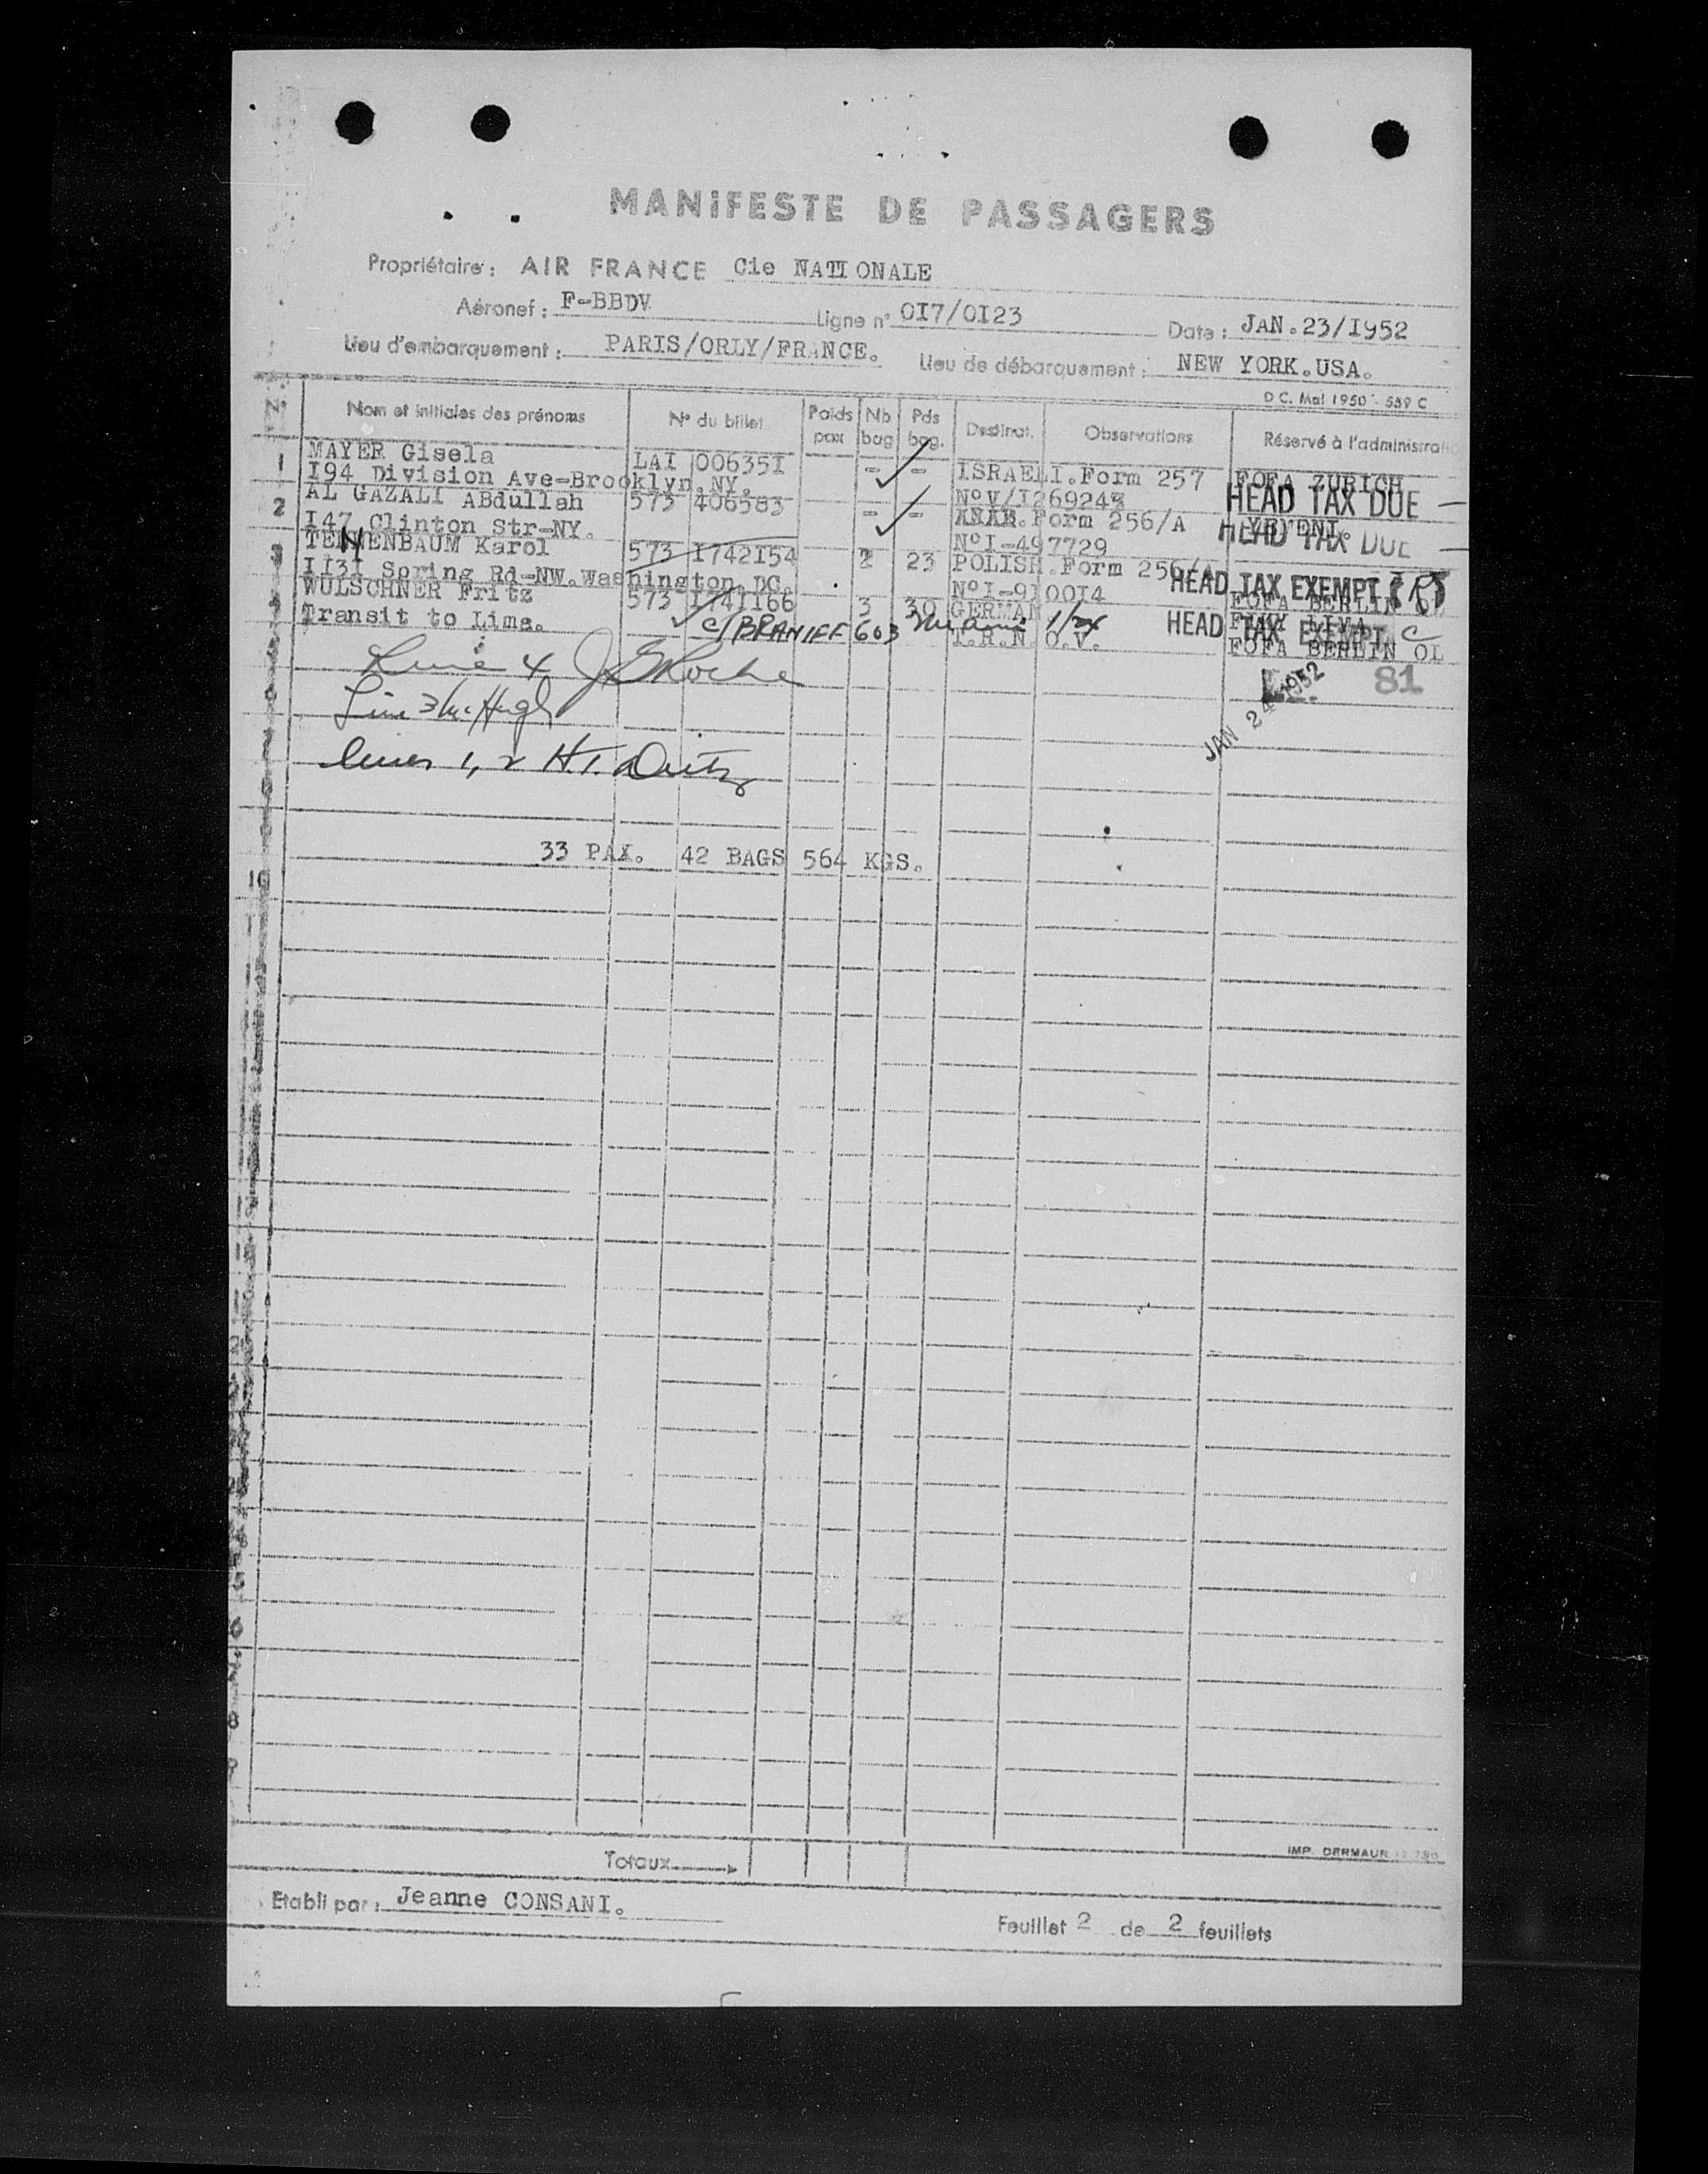 MANiFESTE DE PASSAGERS
Propriétaire: AIR FRANCE Cie NATIONALE
Aéronef: F-BBDV Ligne n° OI7/OI23 Date: JAN.23/I952
Lieu d'embarquement: PARIS/ORLY/FRANCE. Lieu de débarquement: NEW YORK.USA.
D C. Mai 1950 - 589 C
N° Nom et initiales des prénoms N° du billet Poids pax Nb bag Pds bag. Destinat. Observations Réservé à l'administratio
1 MAYER Gisela LAI 00635I - - ISRAELI.Form 257 FOFA ZURICH
I94 Division Ave-Brooklyn.NY. N°V/I269248 HEAD TAX DUE -
2 AL GAZALI ABdullah 573 406583 - - ARAB.Form 256/A YEMENI.
I47 Clinton Str-NY. N°I-497729 HEAD TAX DUE -
3 TENNENBAUM Karol 573 I742I54 2 23 POLISH.Form 256/A
II3I Spring Rd-NW.Washington.DC. N°I-9I00I4 HEAD TAX EXEMPT
FOFA BERLIN OL
4 WULSCHNER Fritz 573 I74II66 3 30 GERMAN
Transit to Lima. C/BRANIFF 603 Miami 1/24 T.R.N. O.V. HEAD TAX EXEMPT C
FOFA BERLIN OL
Line 4 J Roche
JAN 24 1952 81
Line 3 McHugh
lines 1, 2 H.T. Dietz
33 PAX. 42 BAGS 564 KGS.
10
6
8
IMP. DERMAUR
Totaux
Etabli par: Jeanne CONSANI.
Feuillet 2 de 2 feuillets